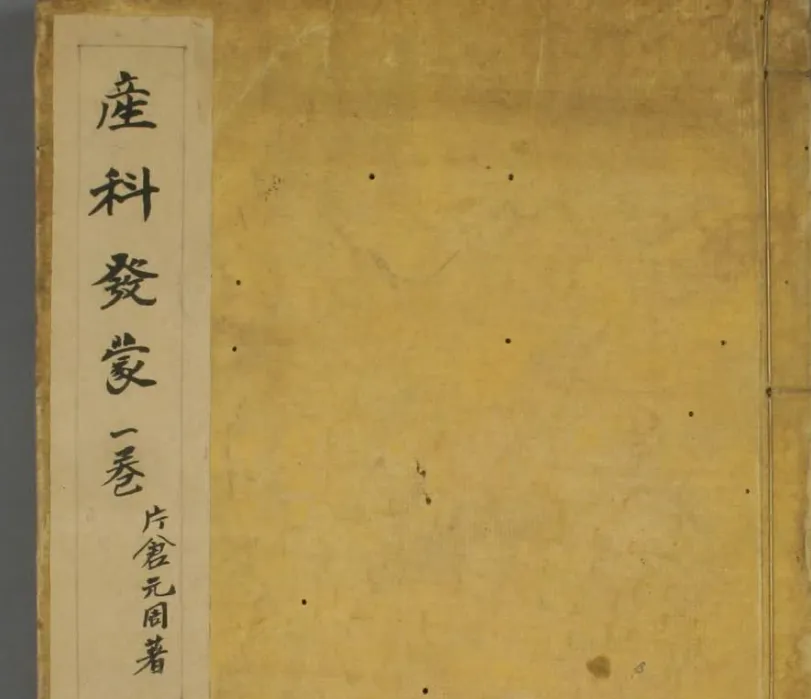 產科發蒙 一巻
片倉元周著